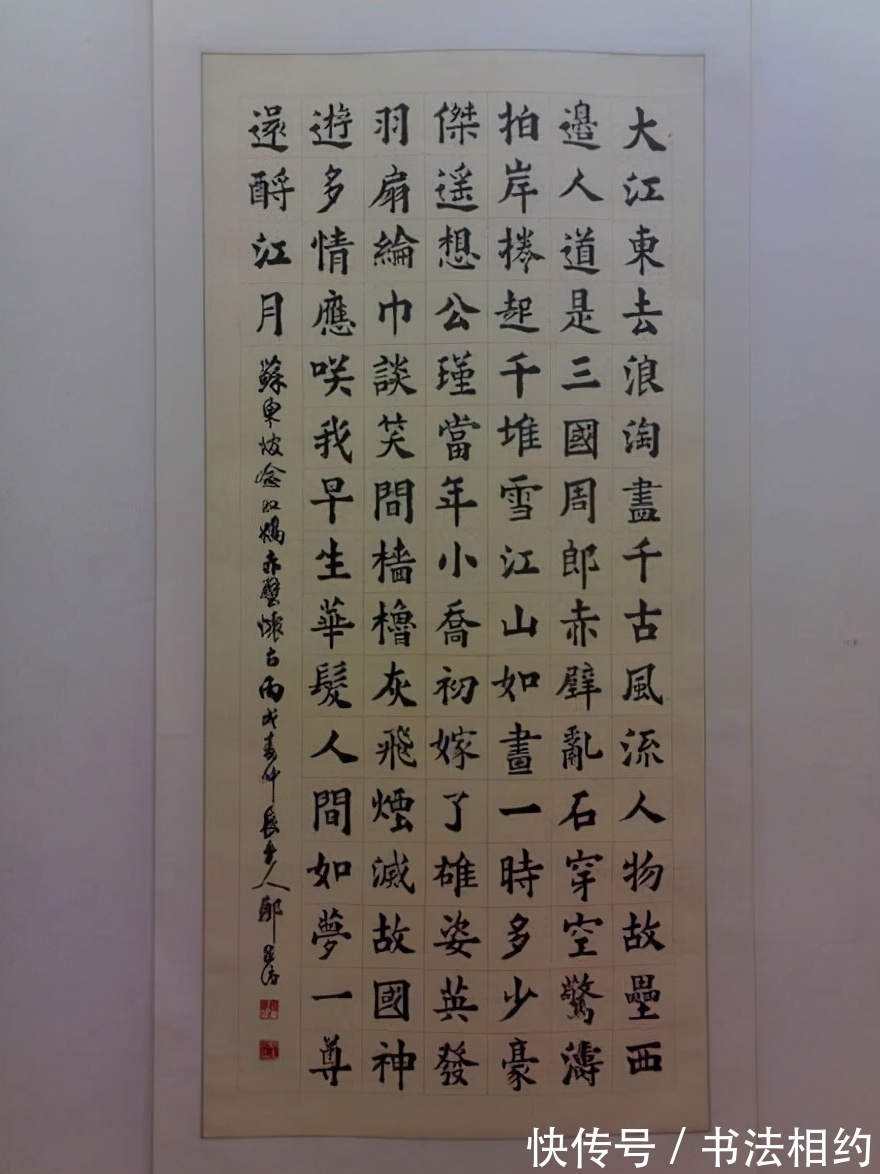 大江東去浪淘盡千古風流人物故壘西
邉人道是三國周郎赤壁亂石穿空驚濤
拍岸捲起千堆雪江山如畫一時多少豪
傑遥想公瑾當年小喬初嫁了雄姿英發
羽扇綸巾談笑間檣櫓灰飛煙滅故國神
遊多情應咲我早生華髮人間如夢一尊
還酹江月
蘇東坡念奴嬌赤壁懷古丙戌春仲長生人鄭
快传号 / 书法相约